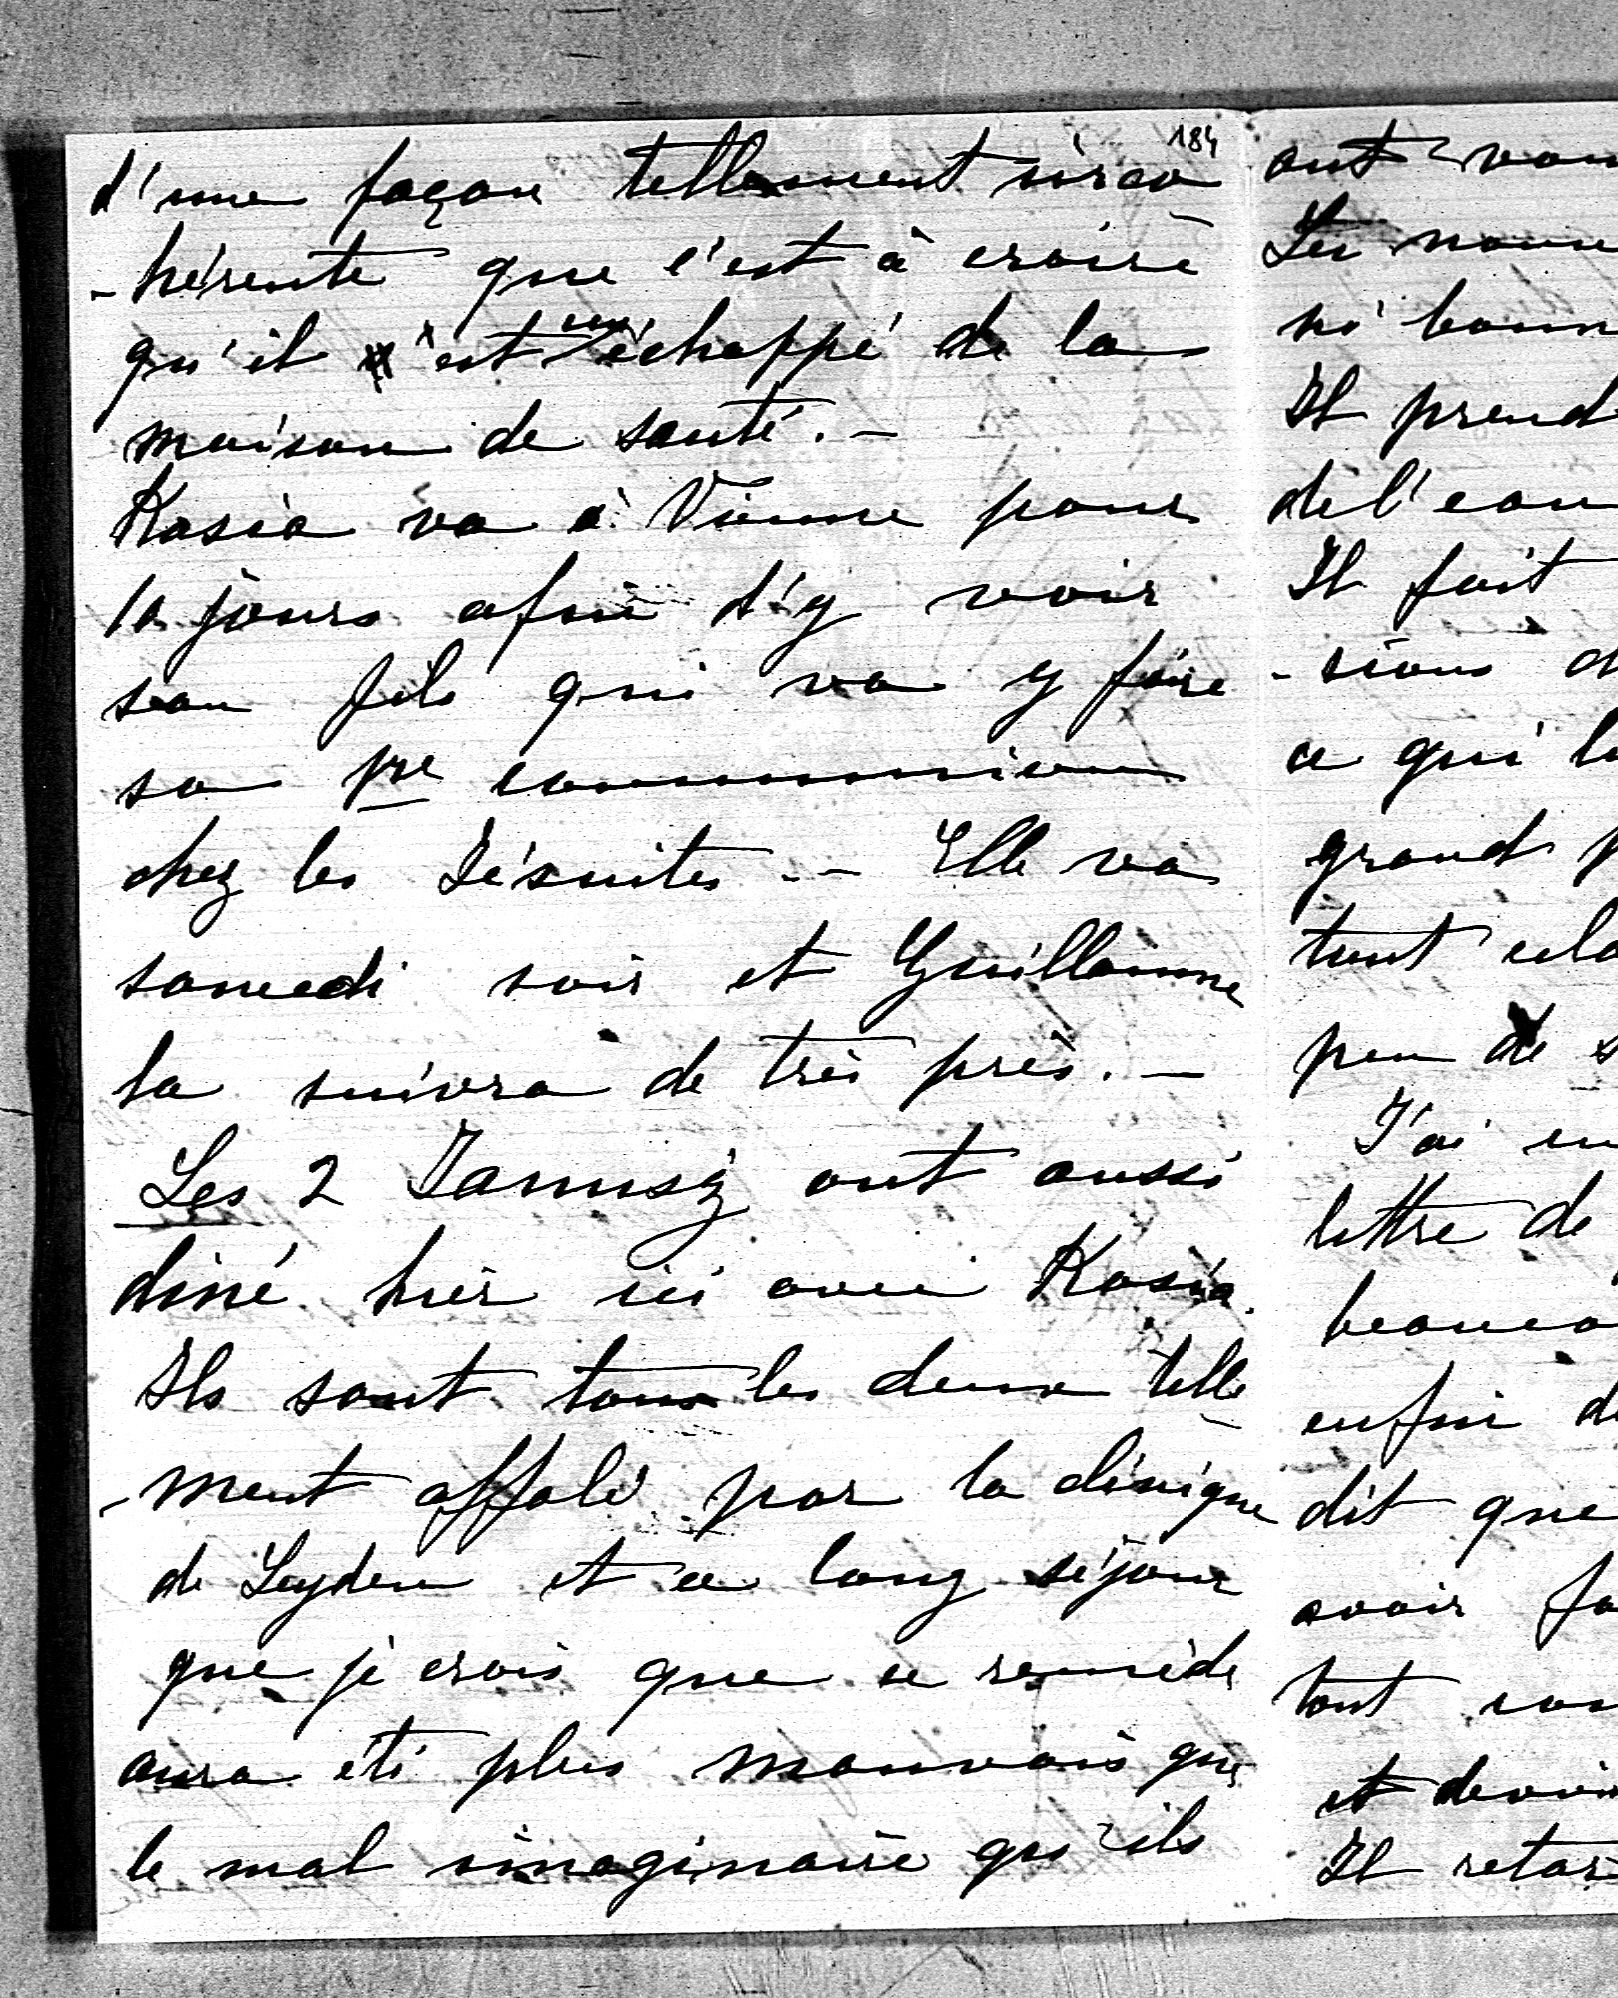 184
d'une façon tellement inco
-hérente que c'est à croire
qu'il est un échappé de la
maison de santé. -
Kasia va à Vienne pour
10 jours afin d'y voir
son fils qui va y faire
sa 1re communion
chez les Jésuites. - Elle va
samedi soir et Guillaume
la suivra de très près. -
Les 2 Janusz ont aussi
diné hier ici avec Kasia.
Ils sont tous les deux telle
-ment affolé par la clinique
de Leyden et ce long séjour
que je crois que ce remède
aura été plus mauvais que
le mal imaginaire qu'ils
ont
Les
Il prend
de l'eau
Il fait
-sions
ce qui
grand
tout cela
peu de
J'ai
lettre de
enfin
dit que
avoir
tout
et
Il